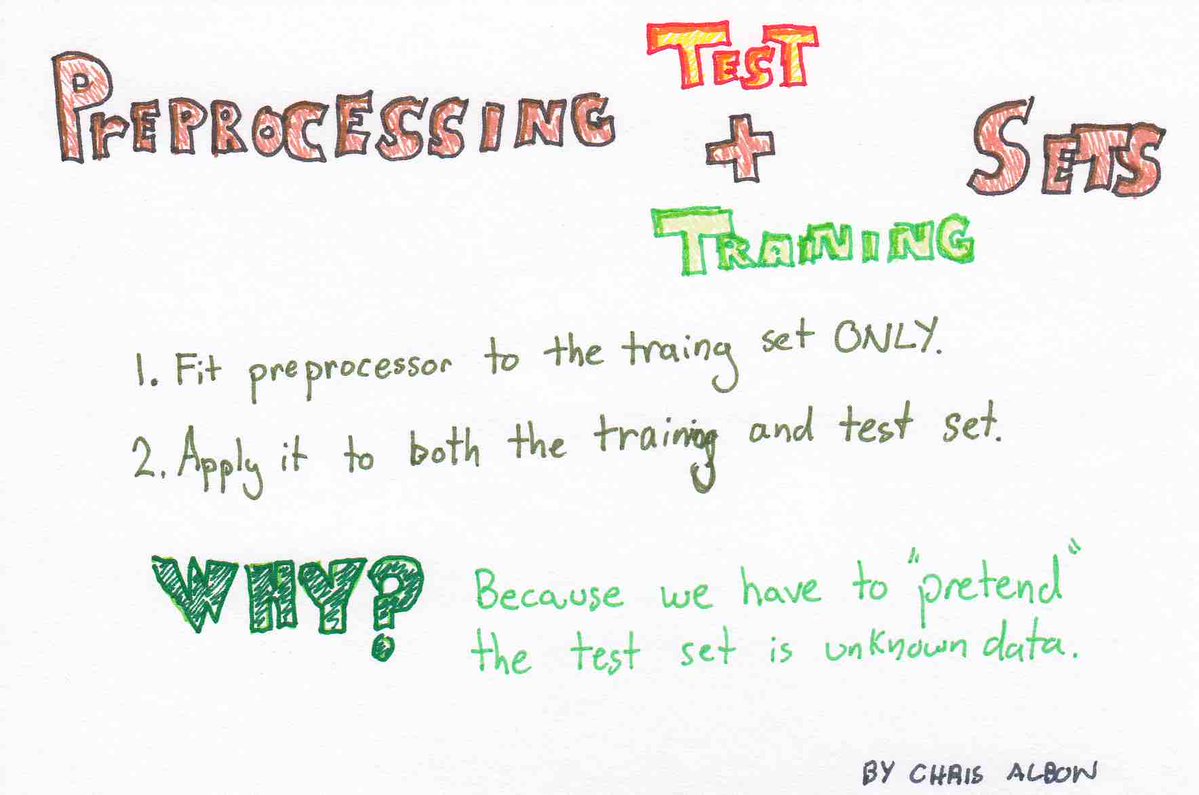 PREPROCESSING TEST + TRAINING SETS
1. Fit preprocessor to the traing set ONLY.
2. Apply it to both the training and test set.
WHY? Because we have to "pretend"
the test set is unknown data.
BY CHRIS ALBON